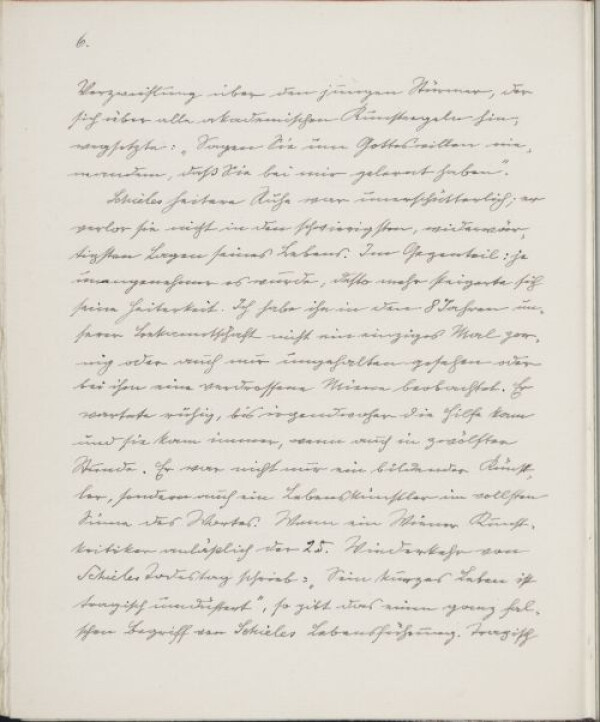 6.
Verzweiflung über den jungen Stürmer, der
sich über alle akademischen Kunstregeln hin-
wegsetzte: „Sagen Sie um Gotteswillen nie-
mandem, daß Sie bei mir gelernt haben".
Schieles heitere Ruhe war unerschütterlich; er
verlor sie nicht in den schwierigsten, widerwär-
tigsten Lagen seines Lebens. Im Gegenteil: je
unangenehmer es wurde, desto mehr steigerte sich
seine Heiterkeit. Ich habe ihn in den 8 Jahren un-
serer Bekanntschaft nicht ein einziges Mal zor-
nig oder auch nur ungehalten gesehen oder
bei ihm eine verdrossene Miene beobachtet. Er
wartete ruhig, bis irgendwoher die Hilfe kam
und sie kam immer, wenn auch in zwölfter
Stunde. Er war nicht nur ein bildender Künst-
ler, sondern auch ein Lebenskünstler im vollsten
Sinne des Wortes. Wenn ein Wiener Kunst-
kritiker anläßlich der 25. Wiederkehr von
Schieles Todestag schrieb: „Sein kurzes Leben ist
tragisch umdüstert", so gibt das einen ganz fal-
schen Begriff von Schieles Lebensführung. Tragisch